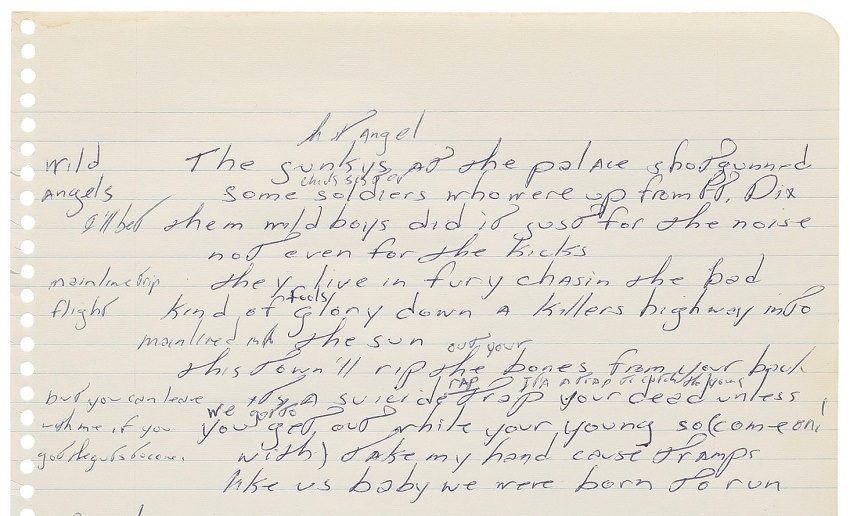 Angel
Wild The gunkys at the palace shotgunned
Angels some soldiers who were up from Ft. Dix
I'll bet them wild boys did it just for the noise
not even for the kicks
mainline trip they live in fury chasin the bad
flight kind of fools glory down a killers highway into
mainlined the sun out your
this town'll rip the bones from your back
rap its a trap to catch the young
but you can leave its a suicide trap your dead unless
we gotto
with me if you you get out while your young so (come on
got the guts to come. with) take my hand cause tramps
like us baby we were born to run